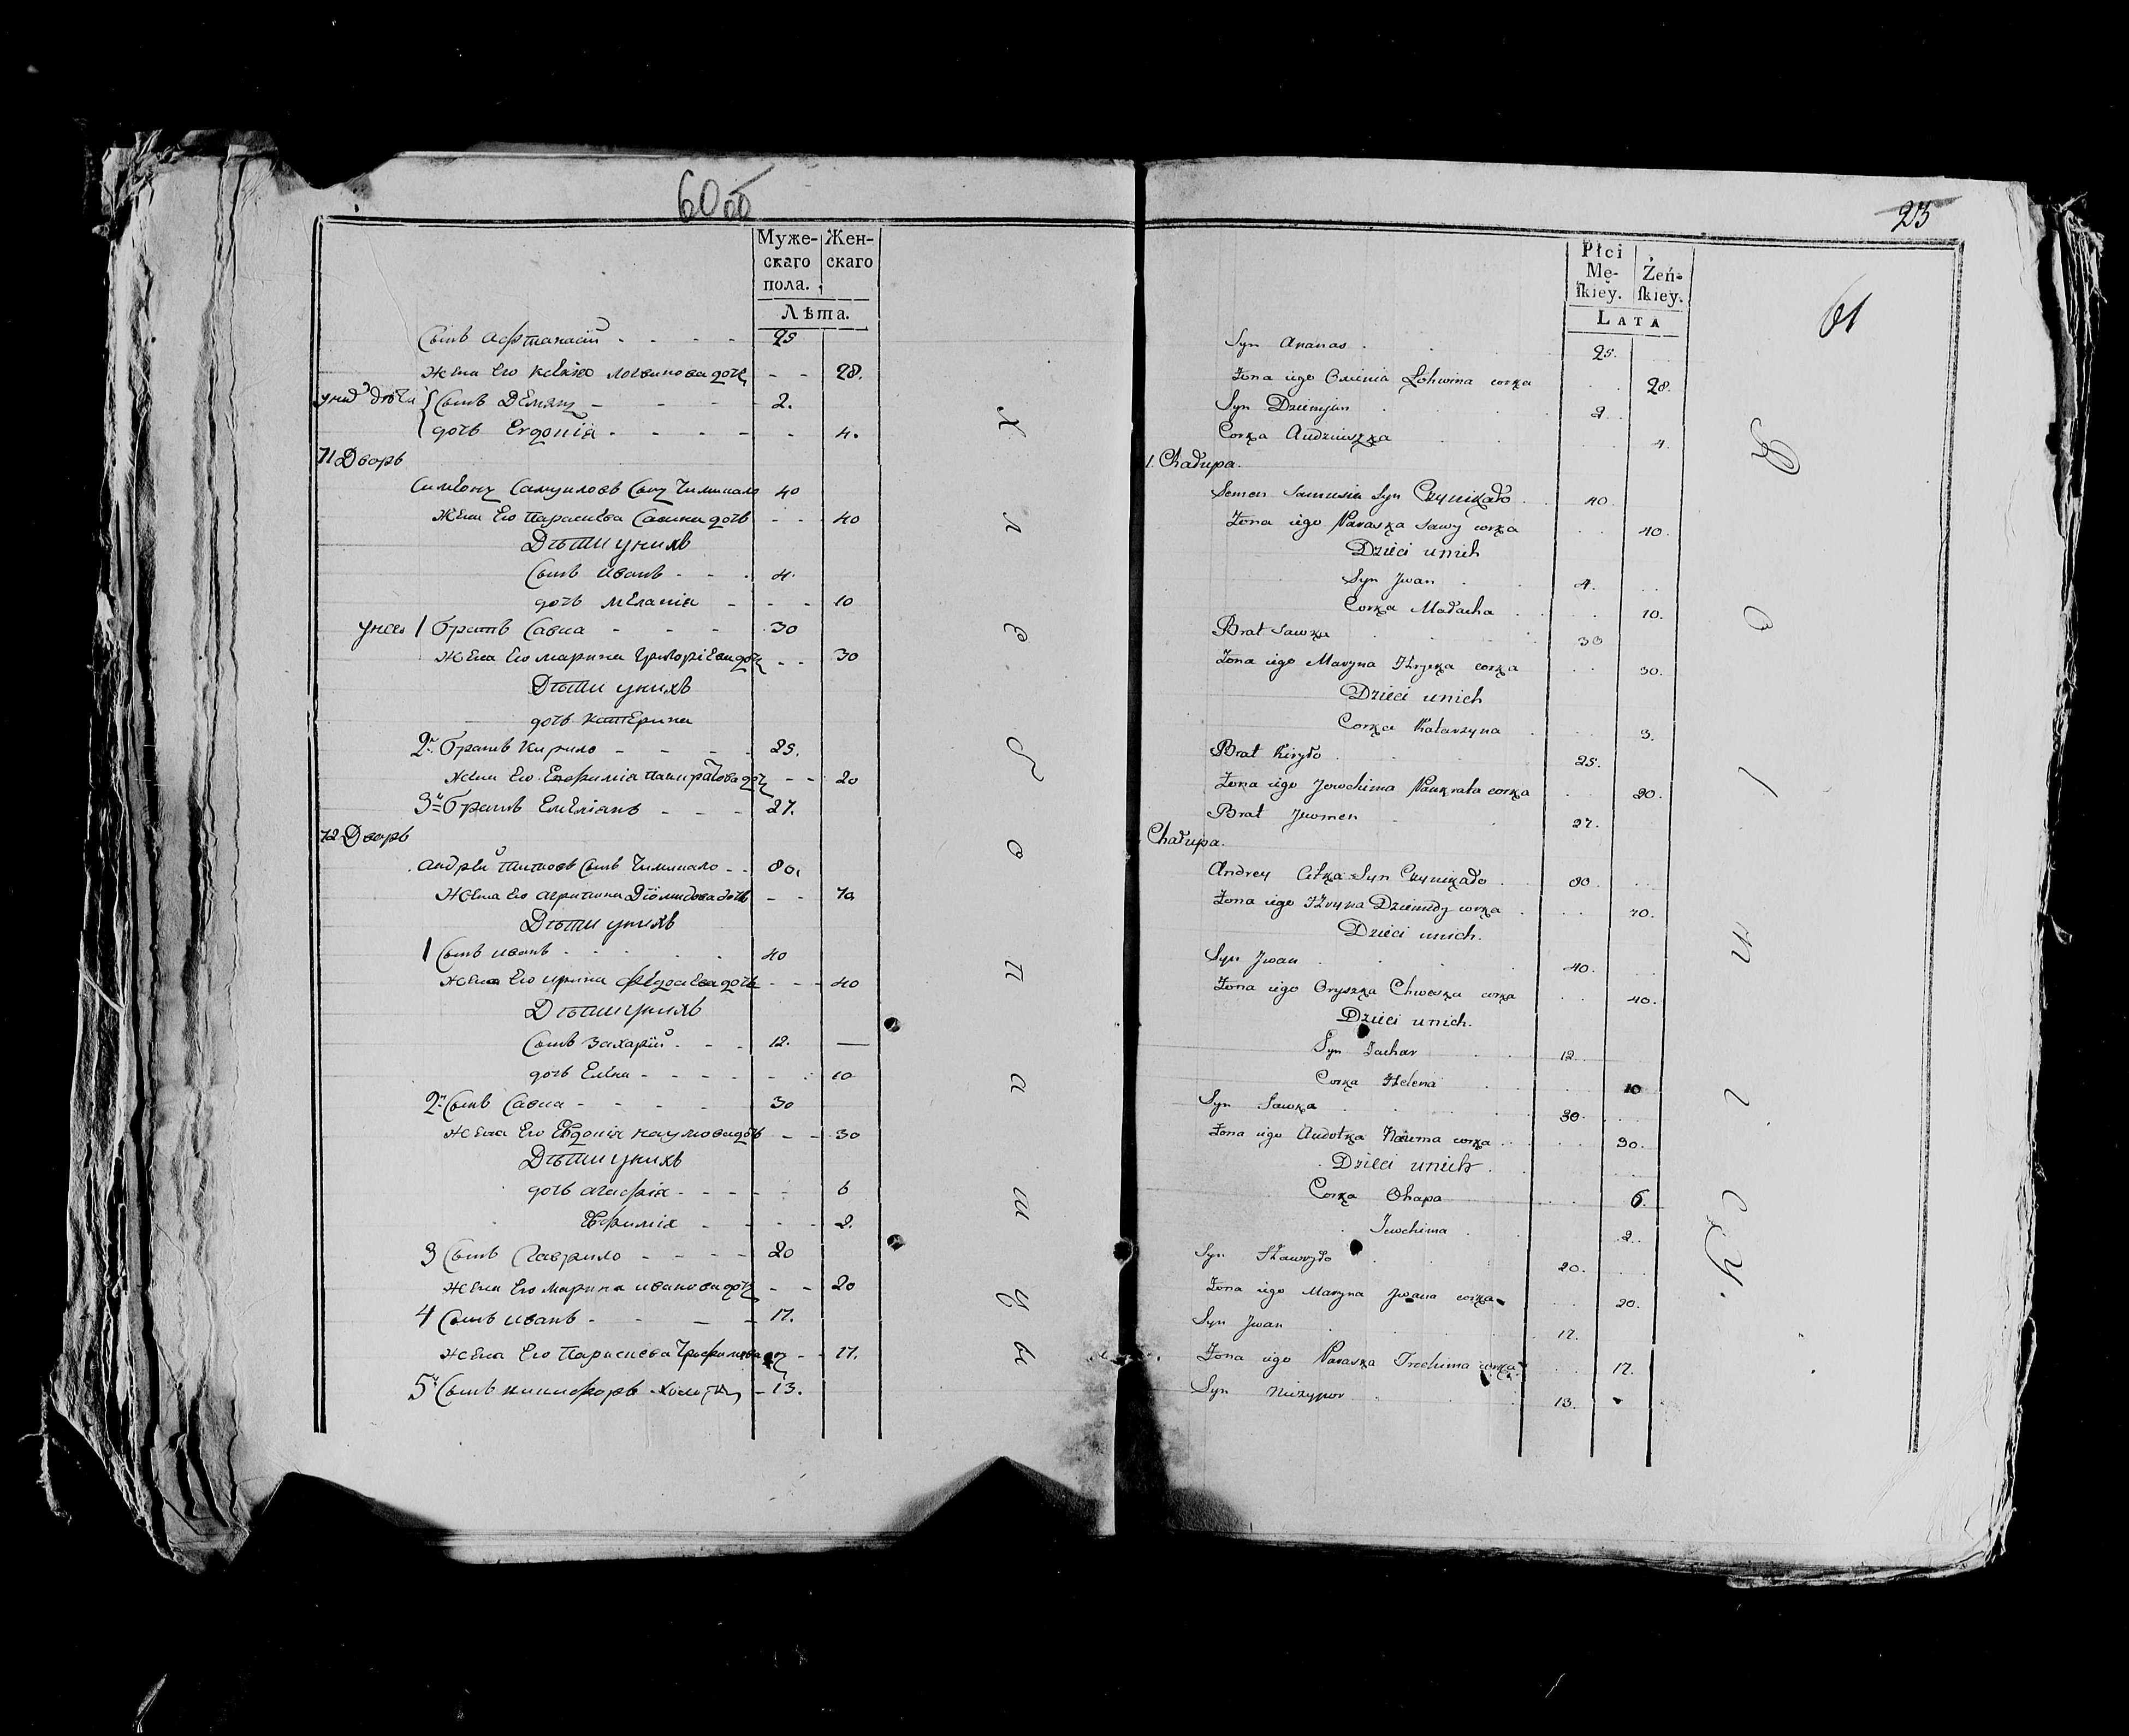 60об
Муже- Жен-
скаго скаго
пола.
Лѣта.
Сынъ Афтанасій 25
жена Его Ксенія логвинова дочь 28.
у них дѣти Сынъ Демянъ 2.
дочь Евдокія 4.
71 Дворъ
Симеонъ Самуиловъ Сынъ 40
жена Его Параскева Савина дочь 40
Дѣти унихъ
Сынъ Иванъ 4.
дочь Меланія 10
унего 1 братъ Савка 30
жена Его марина Григоріева дочь 30
Дѣти унихъ
дочь Катерина
2й братъ Кирило 25.
жена Его Евфимія панкратова дочь 20
3й братъ Емеліанъ 27.
72 Дворъ
Андрей Титковъ Сынъ 80.
жена Его агрипина Діомидова дочь 70
Дѣти унихъ
1 Сынъ иванъ 40
жена Его ирина Федосѣева дочь 40
Дѣти унихъ
Сынъ Захарій 12.
дочь Елена 10
2й Сынъ Савка 30
жена Его Евдокія наумова дочь 30
Дѣти унихъ
дочь агафія 6
Ефимія 2.
3 Сынъ Гаврило 20
жена Его Марина иванова дочь 20
4 Сынъ иванъ 17.
жена Его Параскева Трофимова дочь 17.
5й Сынъ никифоръ 13.
Х л е б о п а ш ц ы
23
61
Płci
Mę- Żeń-
ſkiey. ſkiey.
LATA
Syn Ananas 25.
Żona iego Oxienia Łohwina corka 28.
Syn Dziemjan 2.
Corka Audziuszka 4.
1. Chałupa.
Semen Samusia Syn 40.
Żona iego Paraska Sawy corka 40.
Dzieci unich
Syn Jwan 4.
Corka Małacha 10.
Brat Sawka 30
Żona iego Maryna Hryszka corka 30.
Dzieci unich
Corka Katarzyna 3.
Brat Kiryło 25.
Żona iego Jewchima Pankrata corka 20.
Brat Jwomen 27.
Chałupa.
Andrey Citka Syn 80.
Żona iego Hrypa Dziemidy corka 70.
Dzieci unich.
Syn Jwan 40.
Żona iego Oryszka Chwoska corka 40.
Dzieci unich.
Syn Zachar 12
Corka Helena 10
Syn Sawka 30.
Żona iego Audotka Nauma corka 30.
Dzieci unich.
Corka Ohapa 6.
Jewchima 2.
Syn Hawryło 20.
Żona iego Maryna Jwana corka 20.
Syn Jwan 17.
Żona iego Paraska Trochima corka 17.
Syn Nikypor 13.
R o l n i c y.